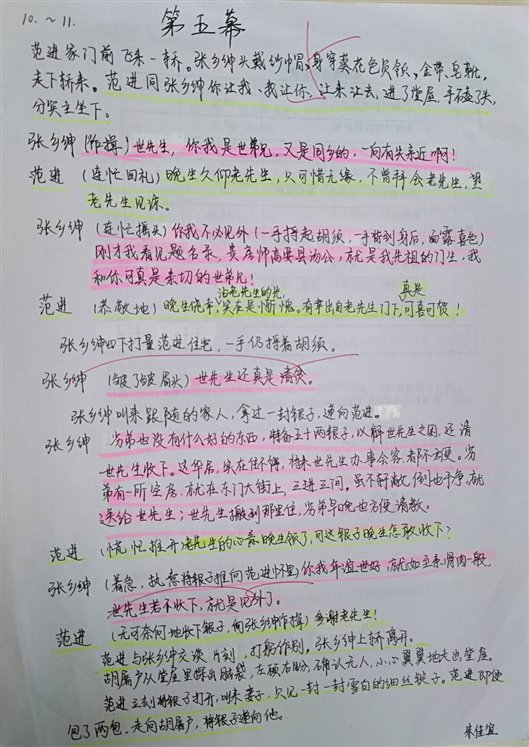 10.~11.
第五幕
范进家门前飞来一轿。张乡绅头戴纱帽,身穿葵花色员领,金带、皂靴,
走下轿来。范进同张乡绅你让我、我让你,让来让去,进了堂屋,平磕了头,
分宾主坐下。
张乡绅 (作揖)世先生,你我是世弟兄,又是同乡的,一向有失亲近啊!
范进 (连忙回礼)晚生久仰老先生,只可惜无缘,不曾拜会老先生,望
老先生见谅。
张乡绅 (连忙摇头)你我不必见外(一手捋起胡须,一手背到身后,面露喜色)
刚才我看见题名录,贵房师高要县汤公,就是我先祖的门生,我
和你可真是亲切的世弟兄!
沾老先生的光 真是
范进 (恭敬地)晚生侥幸,实在是惭愧。有幸出自老先生门下,可喜可贺!
张乡绅四下打量范进住宅,一手仍捋着胡须。
张乡绅 (皱了皱眉头)世先生还真是清贫。
张乡绅叫来跟随的家人,拿过一封银子,递向范进。
张乡绅 兄弟也没有什么好的东西,特备五十两银子,以解世先生之困,还请
世先生收下。这华居,实在住不得,将来世先生办事会客,都不方便。兄
弟有一所空房,就在东门大街上,三进三间。虽不轩敞,倒也干净,就
送给世先生;世先生搬到那里住,兄弟早晚也方便请教。
范进 (慌忙推开)老先生的心意晚生领了,可这银子晚生怎敢收下?
张乡绅 (着急,执意将银子推向范进怀里)你我年谊世好,就如至亲骨肉一般,
世先生若不收下,就是见外了。
范进 (无可奈何地收下银子,向张乡绅作揖)多谢老先生!
范进与张乡绅交谈片刻,打躬作别。张乡绅上轿离开。
胡屠户从堂屋里探出脑袋,左顾右盼,确认无人,小心翼翼地走出堂屋。
范进立刻将银子打开,叫来妻子,只见一封一封雪白的细丝银子。范进即便
包了两包,走向胡屠户,将银子递向他。
朱佳宜